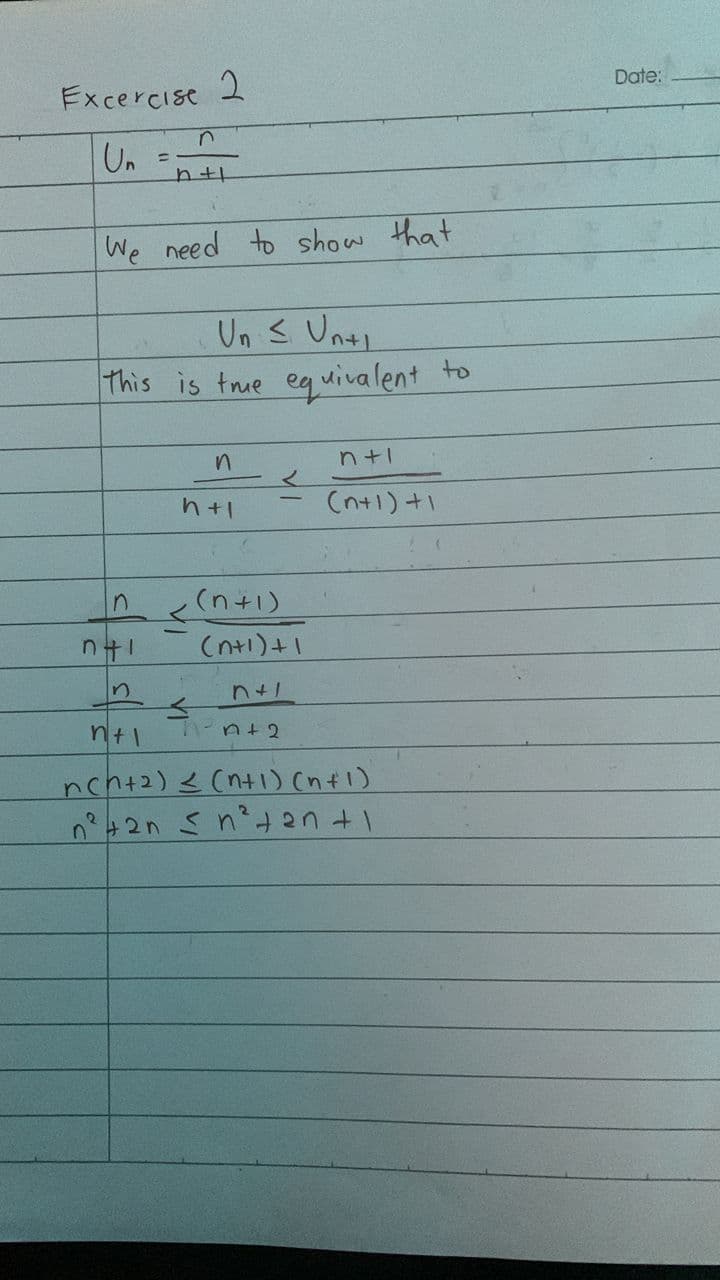 Excercise 2
Date:
Un = n/n+1
We need to show that
Un ≤ Un+1
This is true equivalent to
n/n+1 ≤ n+1/(n+1)+1
n/n+1 ≤ (n+1)/(n+1)+1
n/n+1 ≤ n+1/n+2
n(n+2) ≤ (n+1)(n+1)
n²+2n ≤ n²+2n+1